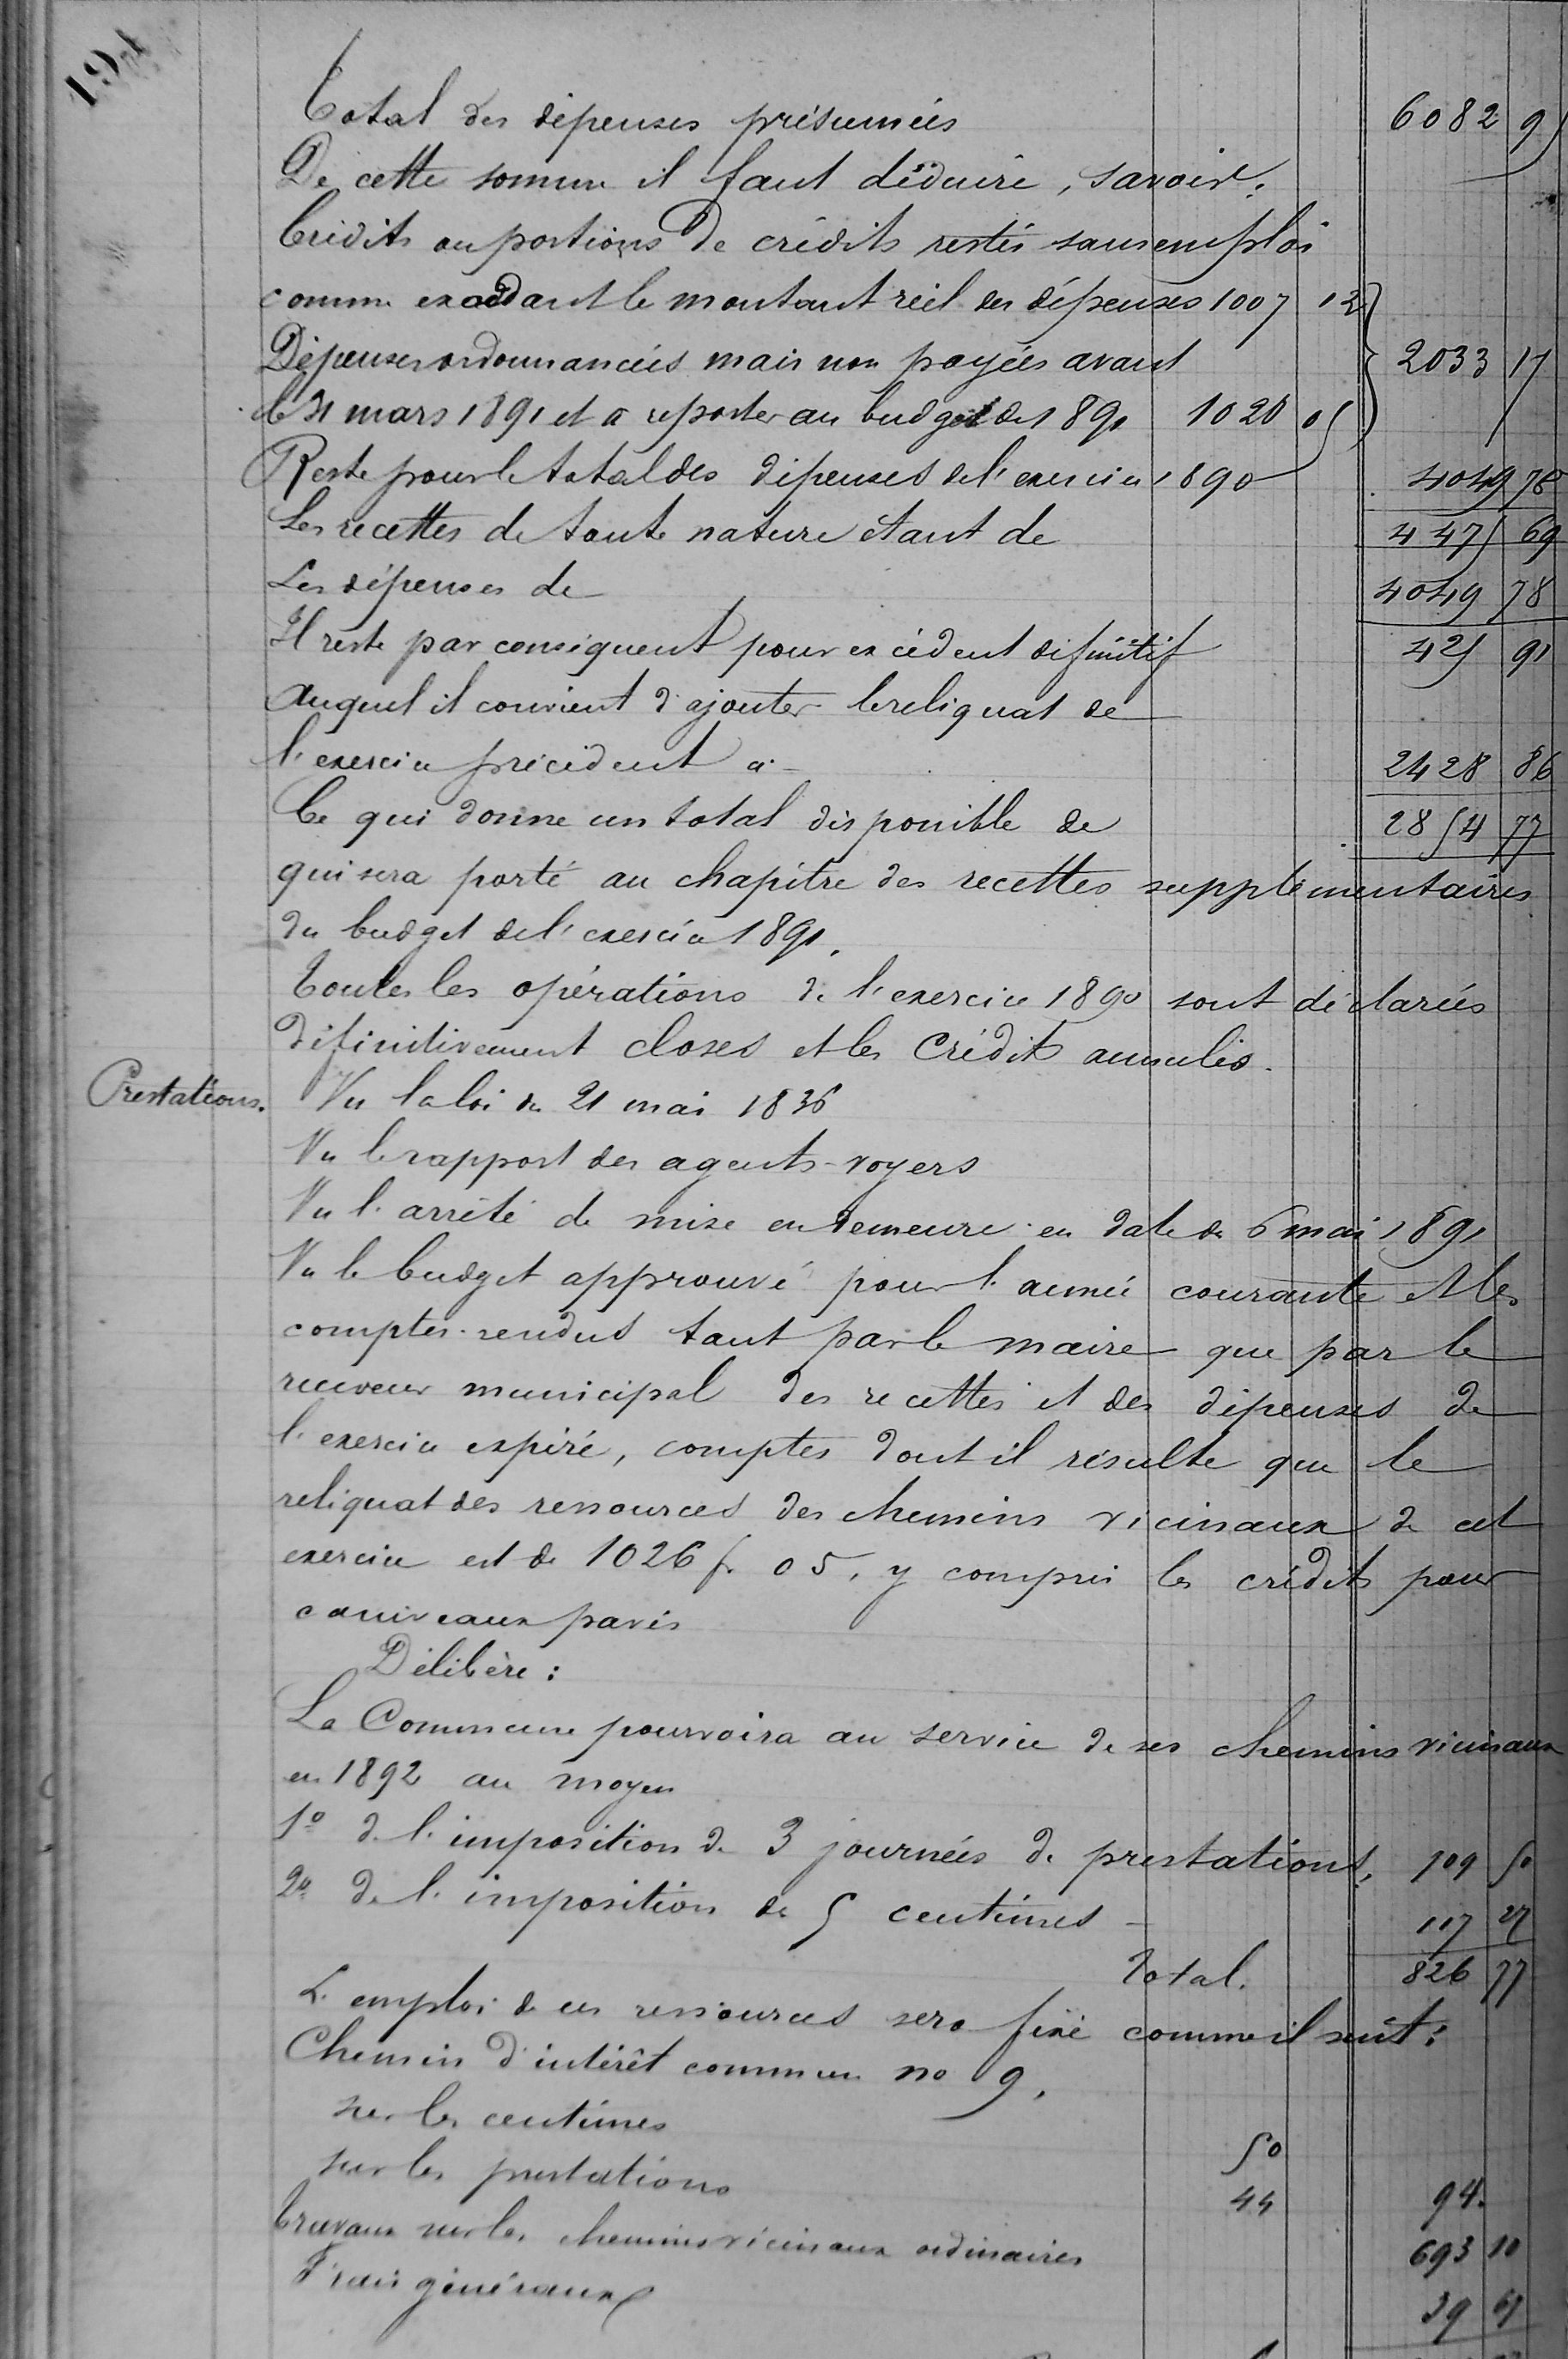 191
Total des dépenses présumées 6082 95
De cette somme il faut déduire, savoir:
Crédits ou portions de crédits restés sans emploi
comme excédant le montant réel des dépenses 1007 12
Dépenses ordonnancées mais non payées avant 2033 17
le 31 mars 1891 et à reporter au budget de 1891 1026 05
Reste pour le total des dépenses de l'exercice 1890 4049 78
Les recettes de toute nature étant de 4475 69
Les dépenses de 4049 78
Il reste par conséquent pour excédent définitif 425 91
auquel il convient d'ajouter le reliquat de
l'exercice précédent à 2428 86
Ce qui donne un total disponible de 2854 77
qui sera porté au chapitre des recettes supplémentaires
du budget de l'exercice 1891.
Toutes les opérations de l'exercice 1890 sont déclarées
définitivement closes et les crédits annulés.
Prestations. Vu la loi du 21 mai 1836
Vu le rapport des agents-voyers
Vu l'arrêté de mise en demeure en date du 6 mai 1891
Vu le budget approuvé pour l'année courante et les
comptes-rendus tant par le maire que par le
receveur municipal des recettes et des dépenses de
l'exercice expiré, comptes dont il résulte que le
reliquat des ressources des chemins vicinaux de cet
exercice est de 1026 f. 05, y compris les crédits pour
caniveaux pavés
Délibère:
La Commune pourvoira au service de ses chemins vicinaux
en 1892 au moyen
1º de l'imposition de 3 journées de prestations, 709 50
2º de l'imposition de 5 centimes 117 27
Total. 826 77
L'emploi de ces ressources sera fixé comme il suit:
Chemin d'intérêt commun no 9,
sur les centimes 50
sur les prestations 44 94.
Travaux sur les chemins vicinaux ordinaires 693 10
Frais généraux 39 67